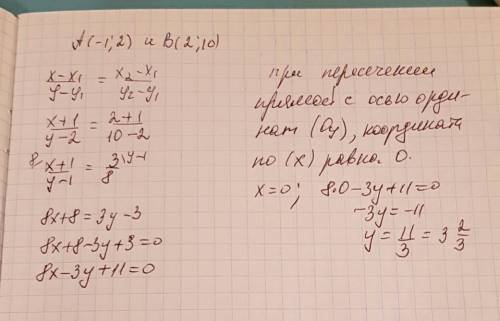 A(-1;2) и B(2;10)
x-x₁/y-y₁ = x₂-x₁/y₂-y₁
x+1/y-2 = 2+1/10-2
8\ x+1/y-1 = 3/8 \y-1
8x+8=3y-3
8x+8-3y+3=0
8x-3y+11=0
при пересечении
прямой с осью орди-
нат (Oy), координата
по (x) равна 0.
x=0; 8·0-3y+11=0
-3y=-11
y= 11/3 = 3 2/3